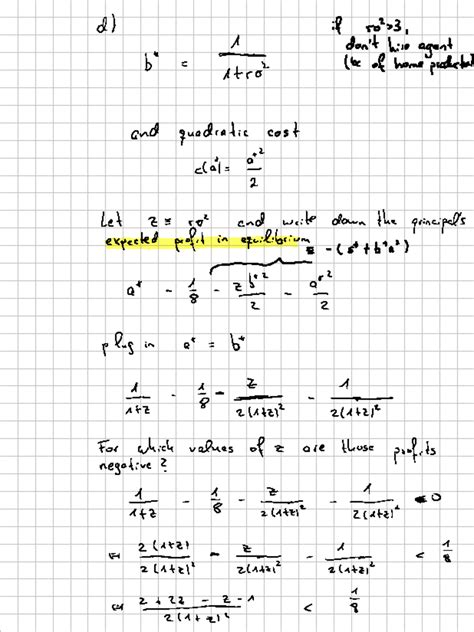 d)
b* = 1 / (1+rσ²)
if rσ²>3,
don't hire agent
(bc of home production
and quadratic cost
c(a*) = a*² / 2
Let z ≡ rσ² and write down the principal's
expected profit in equilibrium
= -(s* + b*a*)
a* - 1/8 - z b*²/2 - a*²/2
plug in a* = b*
1/(1+z) - 1/8 - z/(2(1+z)²) - 1/(2(1+z)²)
For which values of z are those profits
negative?
1/(1+z) - 1/8 - z/(2(1+z)²) - 1/(2(1+z)²) < 0
⇔ 2(1+z)/(2(1+z)²) - z/(2(1+z)²) - 1/(2(1+z)²) < 1/8
⇔ (2 + 2z - z - 1)/(2(1+z)²) < 1/8